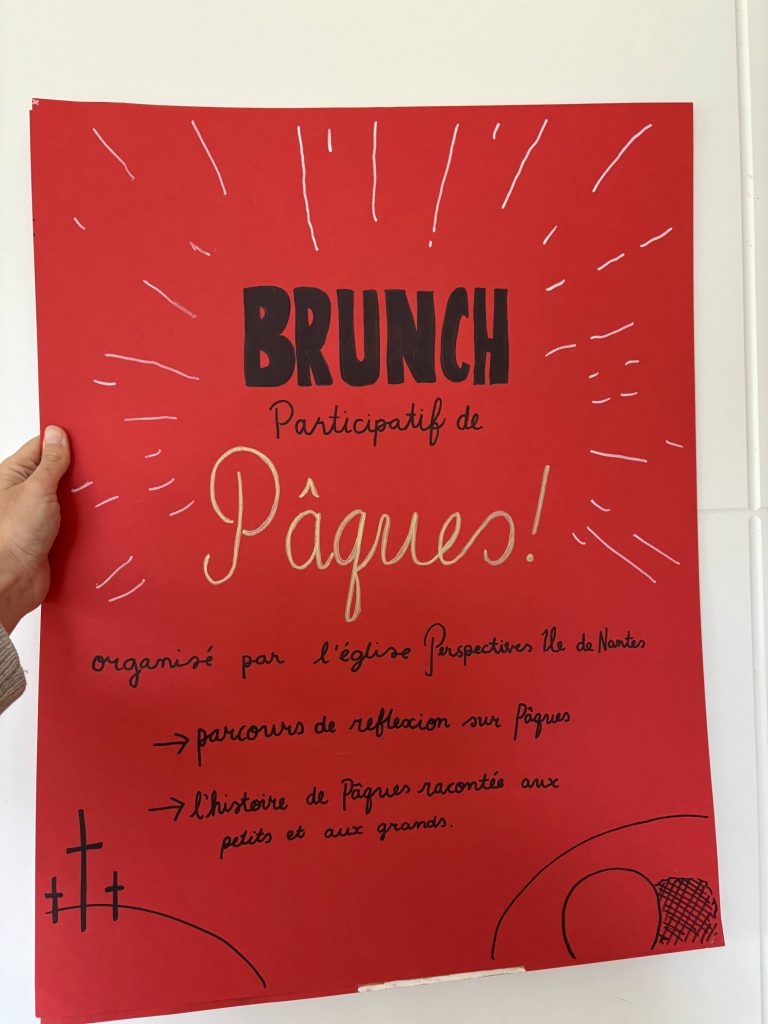 BRUNCH
Participatif de
Pâques!
organisé par l'église Perspectives Ile de Nantes
→ parcours de reflexion sur Pâques
→ l'histoire de Pâques racontée aux
petits et aux grands.